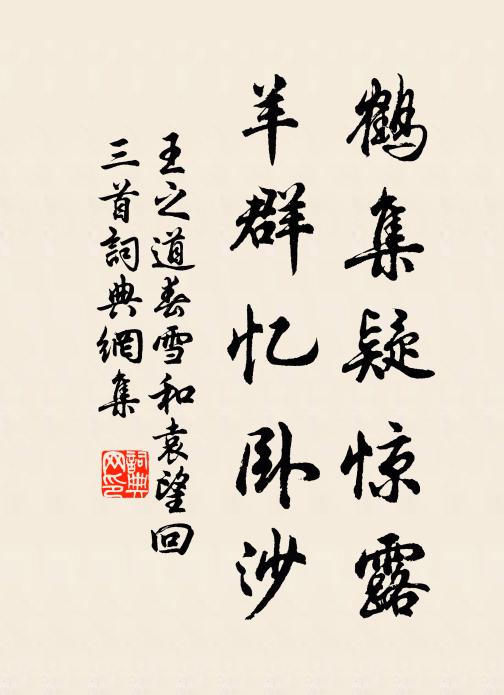 鹤集疑惊露
羊群忆卧沙
王之道春雪和袁望回
三首詞典網集
詞典網印